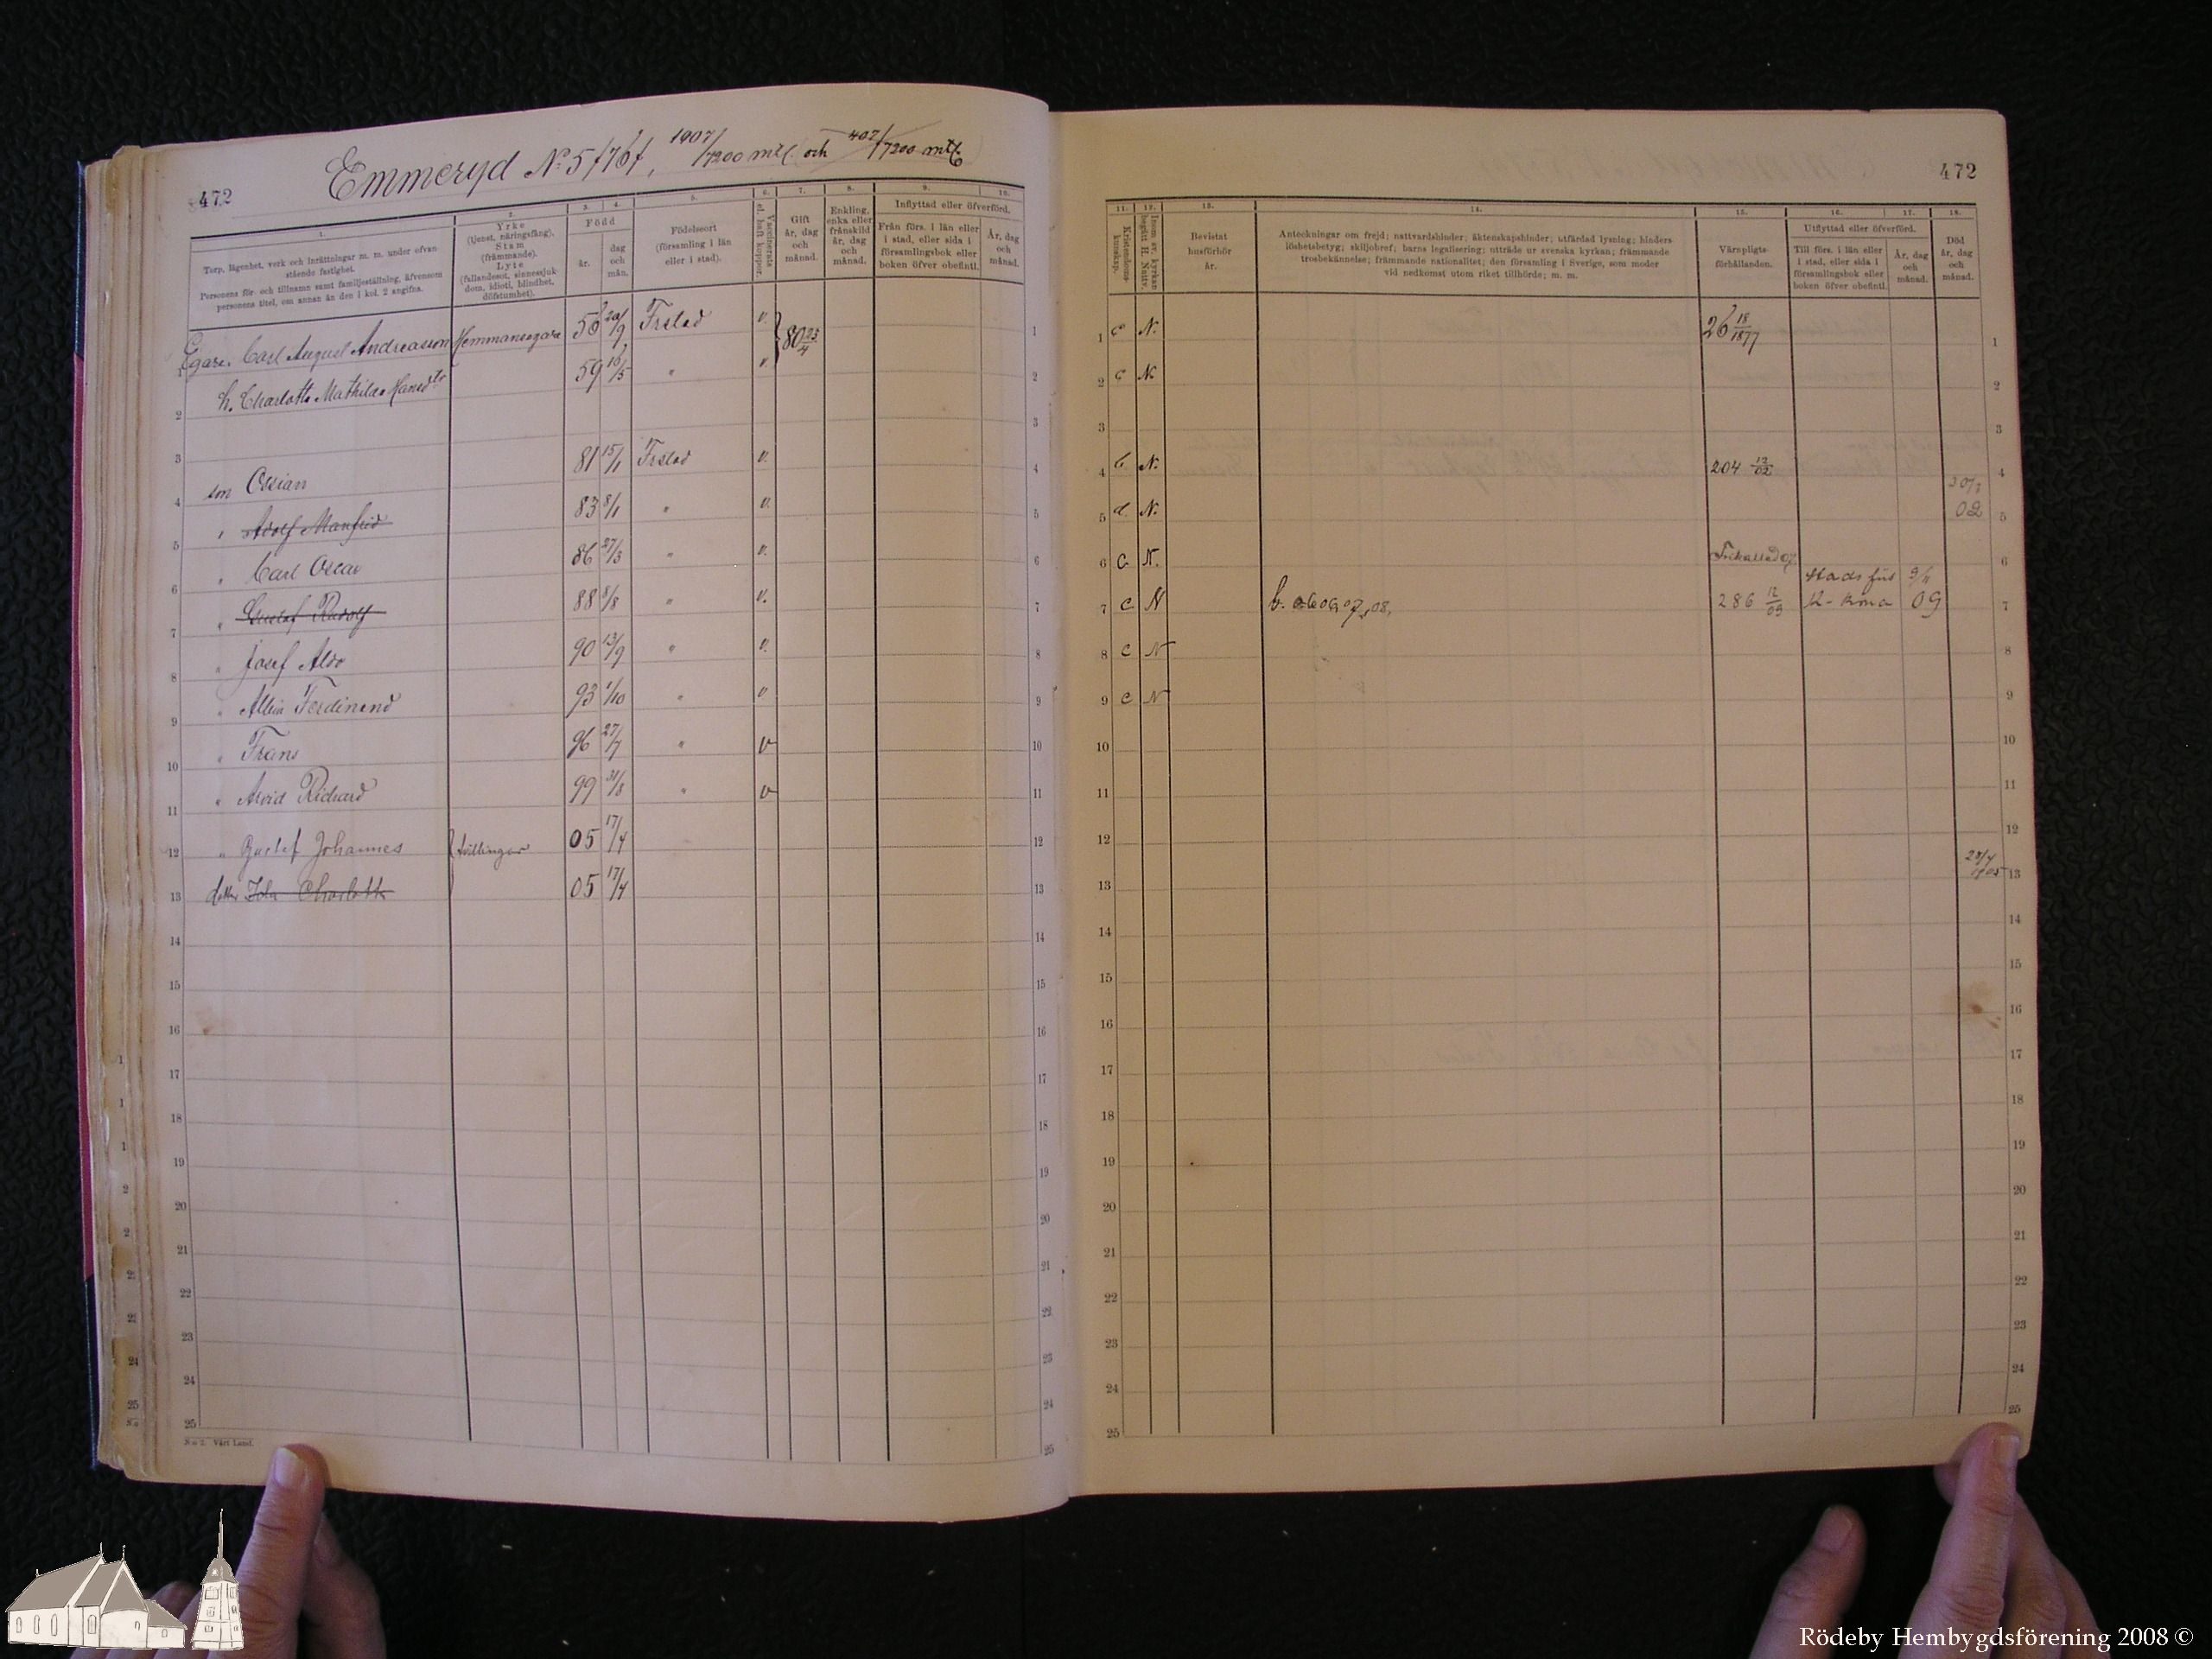 472
Emmeryd No 5 f 76 f, 1907/7200 mtl. och 407/7200 mtl
1. 2. 3. 4. 5. 6. 7. 8. 9. 10.
Torp, lägenhet, verk och inrättningar m. m. under ofvanstående fastighet.
Personens för- och tillnamn samt familjeställning, äfvensom personens titel, om annan än den i kol. 2 angifna.
Yrke
(tjenst, näringsfång).
Stam
(främmande).
Lyte
(fallandesot, sinnessjukdom, idioti, blindhet, döfstumhet).
Född
år.
dag och mån.
Födelseort
(församling i län eller i stad).
Vaccinerats el. haft koppor.
Gift år, dag och månad.
Enkling, enka eller frånskild år, dag och månad.
Inflyttad eller öfverförd.
Från förs. i län eller i stad, eller sida i församlingsbok eller boken öfver obefintl.
År, dag och månad.
Egare. Carl August Andreasson Hemmansegare 58 20/9 Frstad v. 80 23/4
h. Charlotta Mathilda Hansdtr 59 16/5 " v
son Ossian 81 15/1 Frstad v.
" Adolf Manfrid 83 8/1 " v.
" Carl Oscar 86 27/3 " v.
" Gustaf Rudolf 88 8/8 " v.
" Josef Aldo 90 13/9 " v.
" Albin Ferdinand 93 1/10 " v
" Frans 96 27/7 " v
" Arvid Richard 99 31/8 " v
" Gustaf Johannes tvillingar 05 17/4
dotter Ida Charlotta 05 17/4
No 2. Vårt Land.
472
11. 12. 13. 14. 15. 16. 17. 18.
Kristendomskunskap.
Inom sv. kyrkan begått H. Nattv.
Bevistat husförhör år.
Anteckningar om frejd; nattvardshinder; äktenskapshinder; utfärdad lysning; hinderslöshetsbetyg; skiljobref; barns legalisering; utträde ur svenska kyrkan; främmande trosbekännelse; främmande nationalitet; den församling i Sverige, som moder vid nedkomst utom riket tillhörde; m. m.
Värnpligtsförhållanden.
Utflyttad eller öfverförd.
Till förs. i län eller i stad, eller sida i församlingsbok eller boken öfver obefintl.
År, dag och månad.
Död år, dag och månad.
1 c N. 26 18/1877
2 c N
3
4 b N. 204 12/02
5 d. N. 02
6 c. N. Frikallad 07
7 c N 07, 08, 286 12/09 Stadsförs K-krona 9/11 09
8 c N
9 c N
10
11
12
13 20/4 1905
14
15
16
17
18
19
20
21
22
23
24
25
Rödeby Hembygdsförening 2008 ©